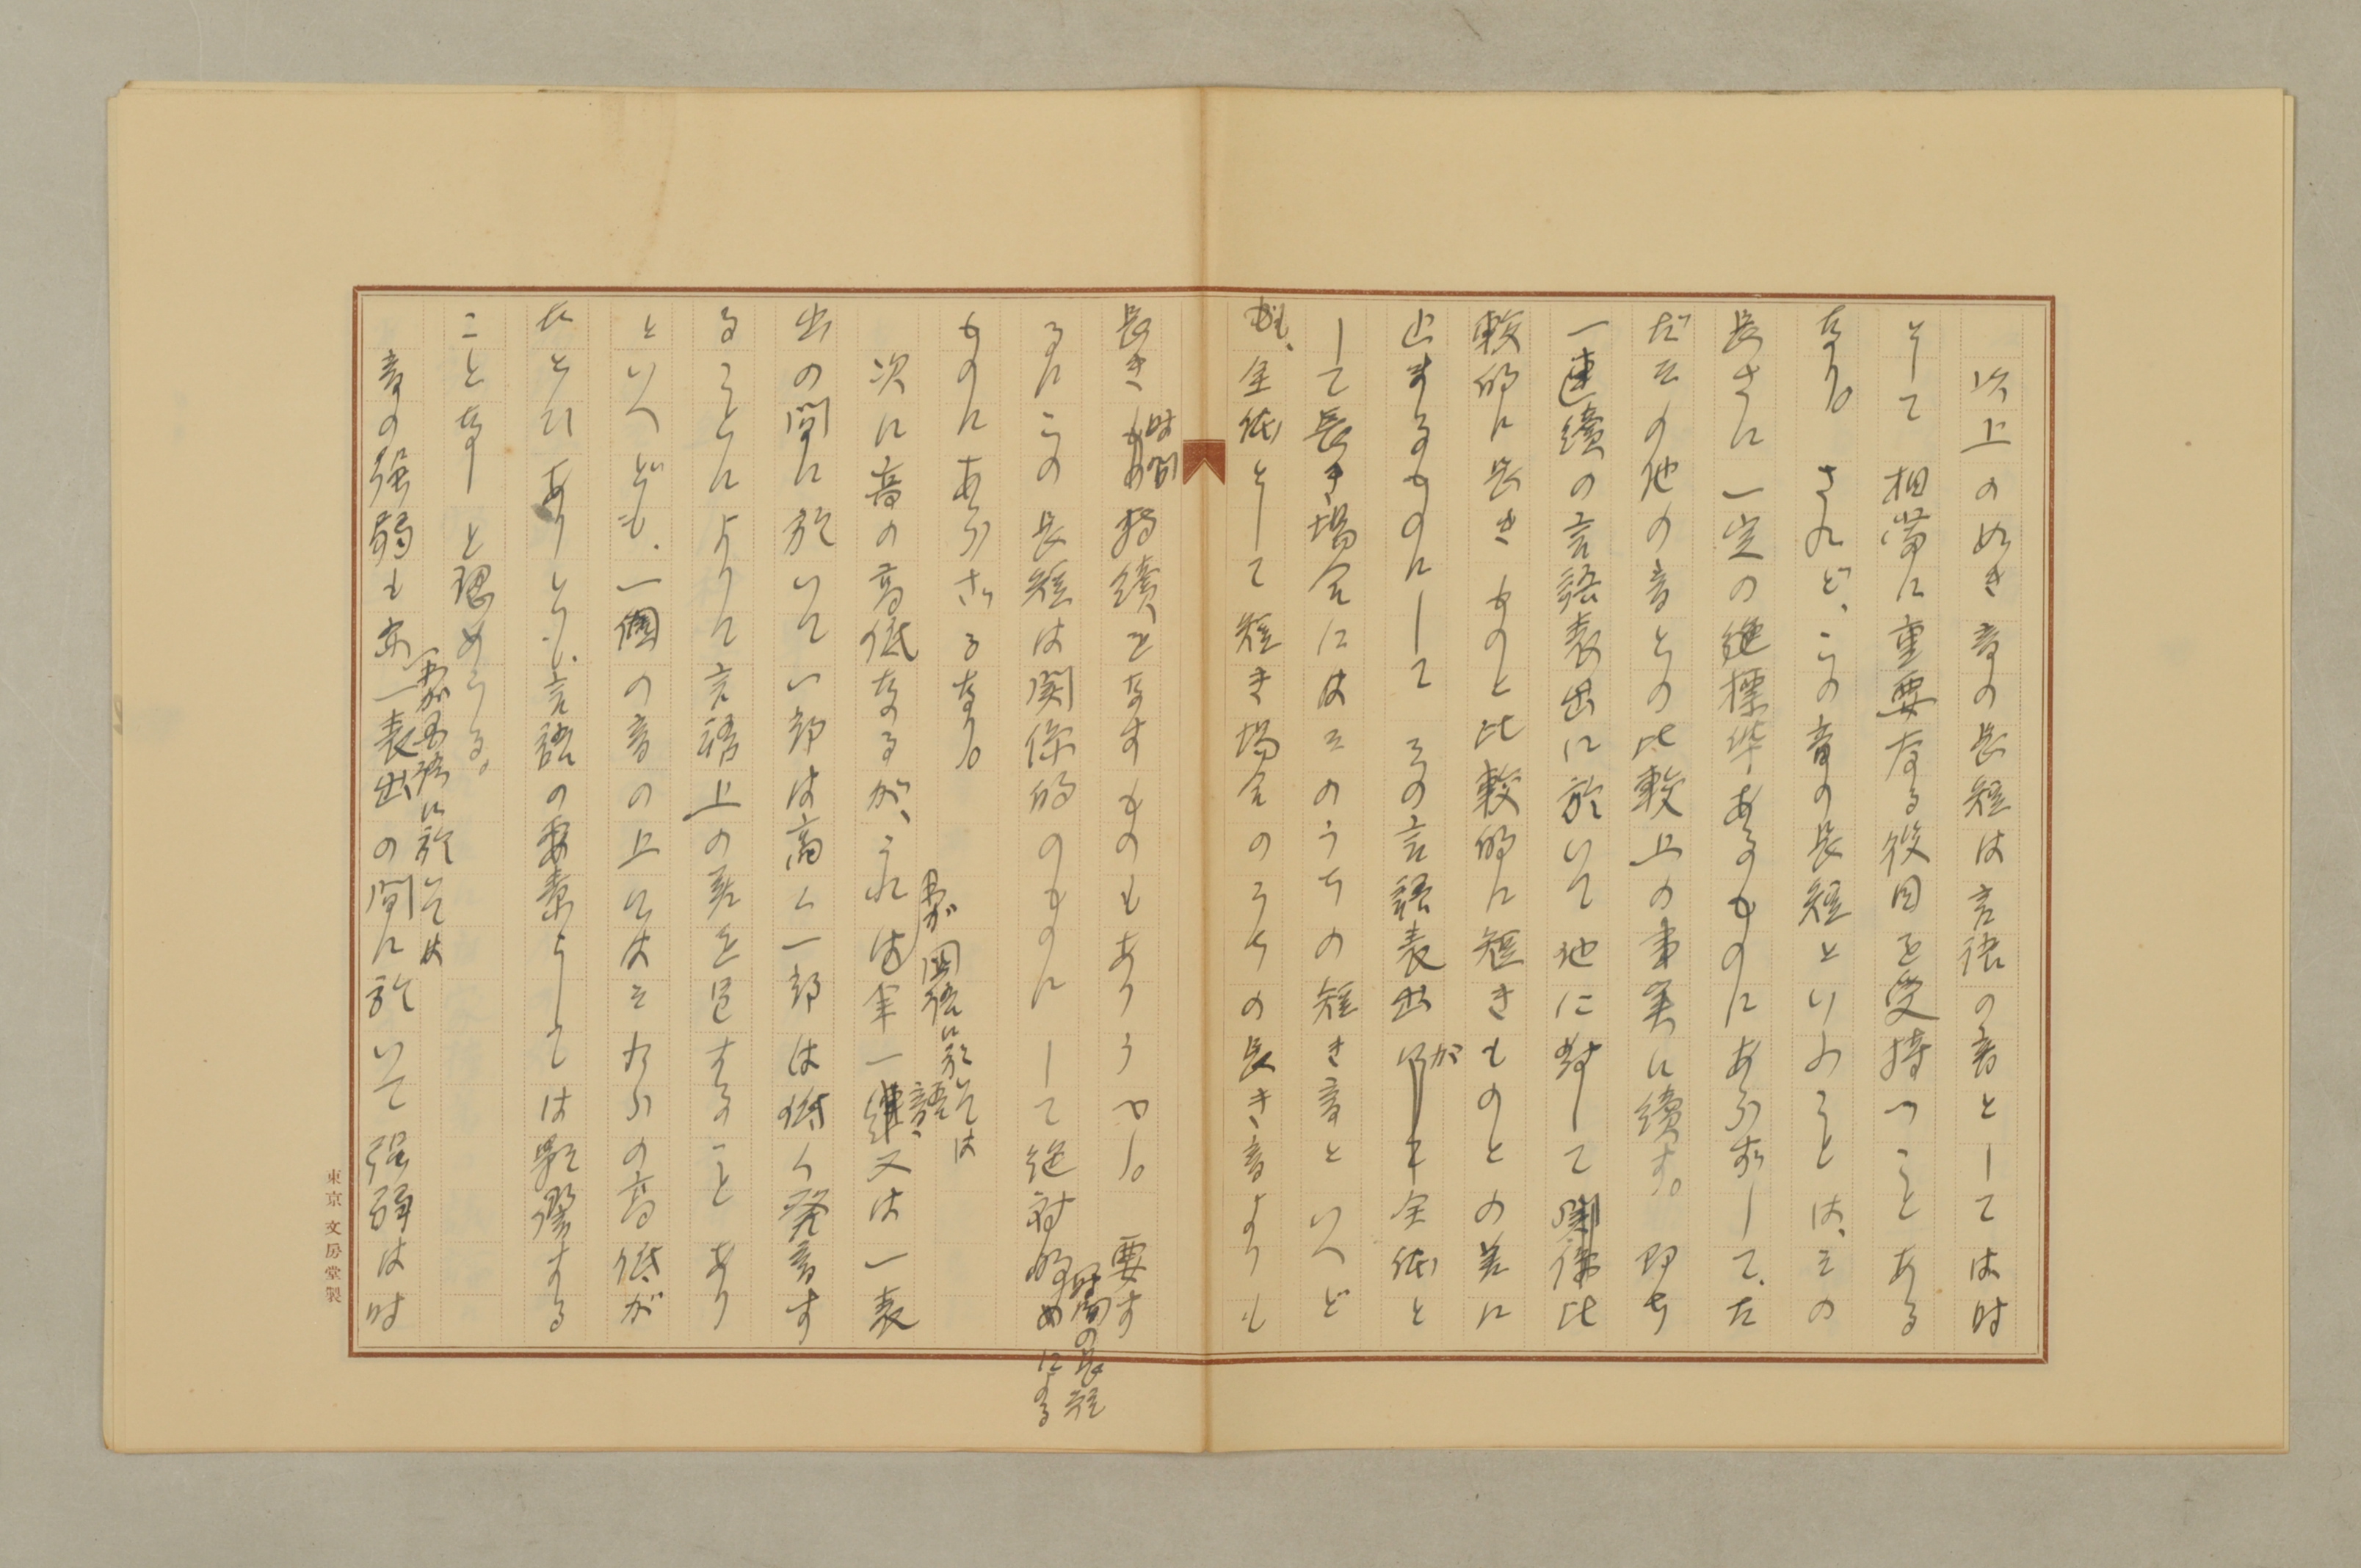 以上の如き音の長短は言語の音としては時
として相當に重要なる役目を受持つことある
なり。されど、この音の長短といふことは、その
長さに一定の絶標準あるものにあらずして、た
だその他の音との比較上の事実に続す。即ち
一連續の言語表出に於いて他に對して比
較的に長きものと比較的に短きものとの差に
止まるものにしてその言語表出が全体と
して長き場合にはそのうちの短き音といへど
も、全体として短き場合のうちの長き音よりも
長き時間持續をなすものもありうべし。要す
るにこの長短は関係的のものにして絶対的
時間の長短
によるものにあらざるなり。
次に音の高低なるが、これは
わが國語に於いては
單一語、又は一表
出の間に於いて、一部は高く一部は低く発音す
ることによりて言語上の差を呈することあり
といへども、一個の音の上にはそれらの高低が
たとひありとも、言語の要素としては影響する
ことなしと認めらる。
音の強弱も亦
わが國語に於いては
一表出の間に於いて強弱は時
東京 文房堂製